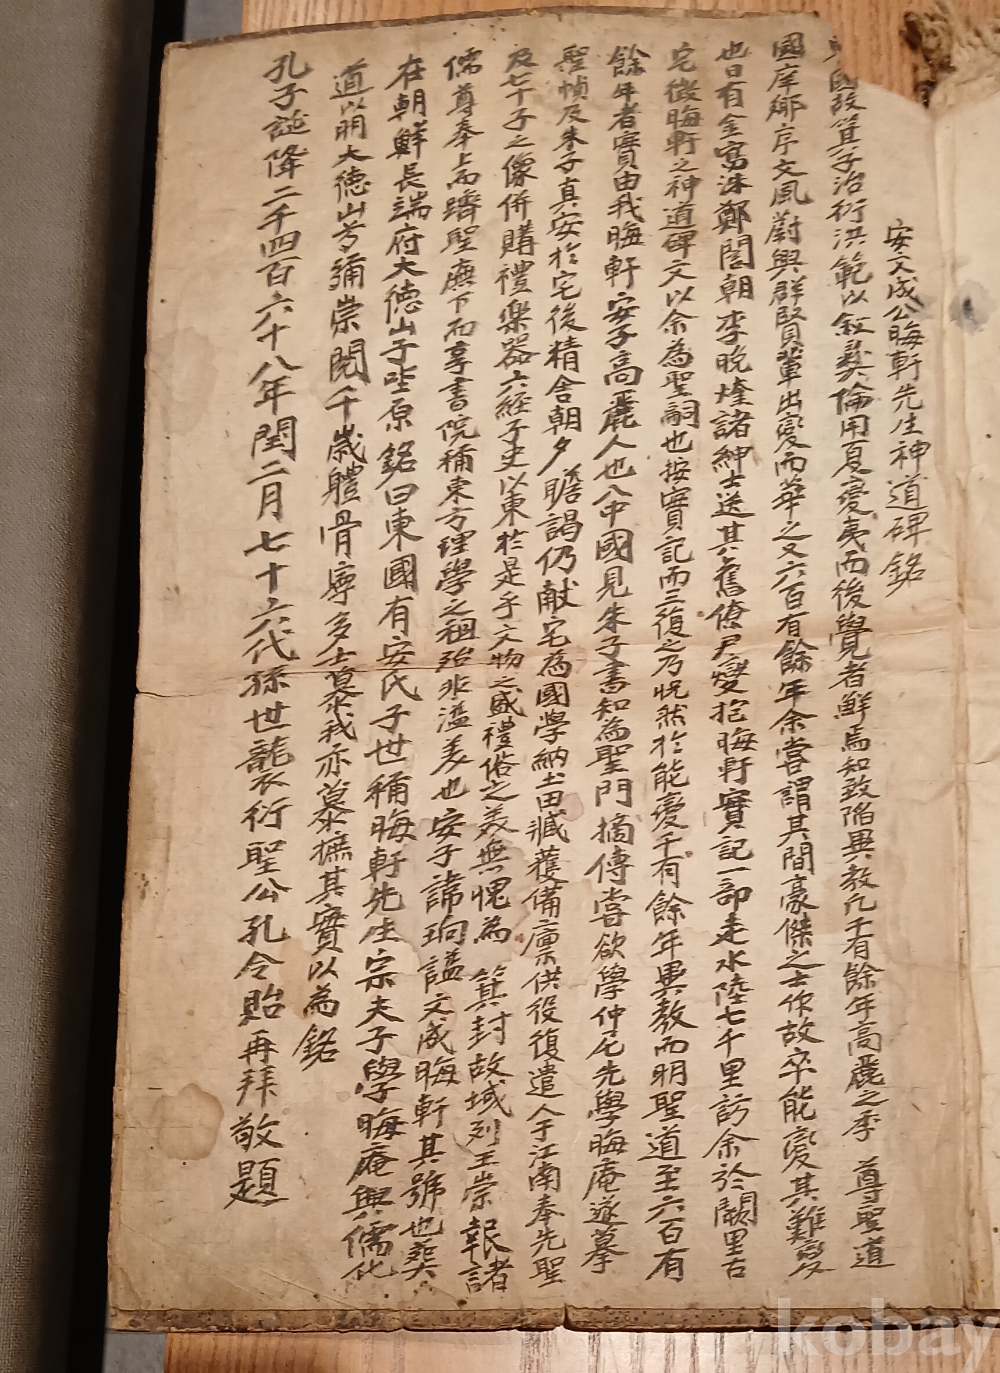 安文成公晦軒先生神道碑銘
國故箕子治衍洪範以敘彜倫用夏變夷而後覺者鮮焉知致陷異敎凡千有餘年高麗之季 尊聖道
國庠鄕序文風蔚興群賢輩出變而華之又六百有餘年余嘗謂其間豪傑之士作故卒能變其難變
也日有金寓洙鄭誾朝李晩煃諸紳士送其舊僚尹燮抱晦軒實記一部走水陸七千里訪余於闕里古
宅徵晦軒之神道碑文以余為聖嗣也按實記而三復之乃恍然於能變千有餘年異敎而明聖道至六百有
餘年者實由我晦軒安子高麗人也入中國見朱子書知為聖門摘傳嘗欲學仲尼先學晦庵遂摹
聖幀及朱子真安於宅後精舍朝夕瞻謁仍献宅為國學納土田臧獲備廩供役復遣人于江南奉先聖
及七十子之像併購禮樂器六經子史以東於是乎文物之盛禮俗之美無愧為 箕封故域列王崇報諸
儒尊奉上而躋聖廡下而享書院稱東方理學之祖殆非溢美也安子諱珦謚文成晦軒其號也葬
在朝鮮長端府大德山子坐原銘曰東國有安氏子世稱晦軒先生宗夫子學晦庵興儒化
道以明大德山兮彌崇閱千歲軆骨寧多士慕我亦慕摭其實以為銘
孔子誕降二千四百六十八年閏二月七十六代孫世襲衍聖公孔令貽再拜敬題
kobay